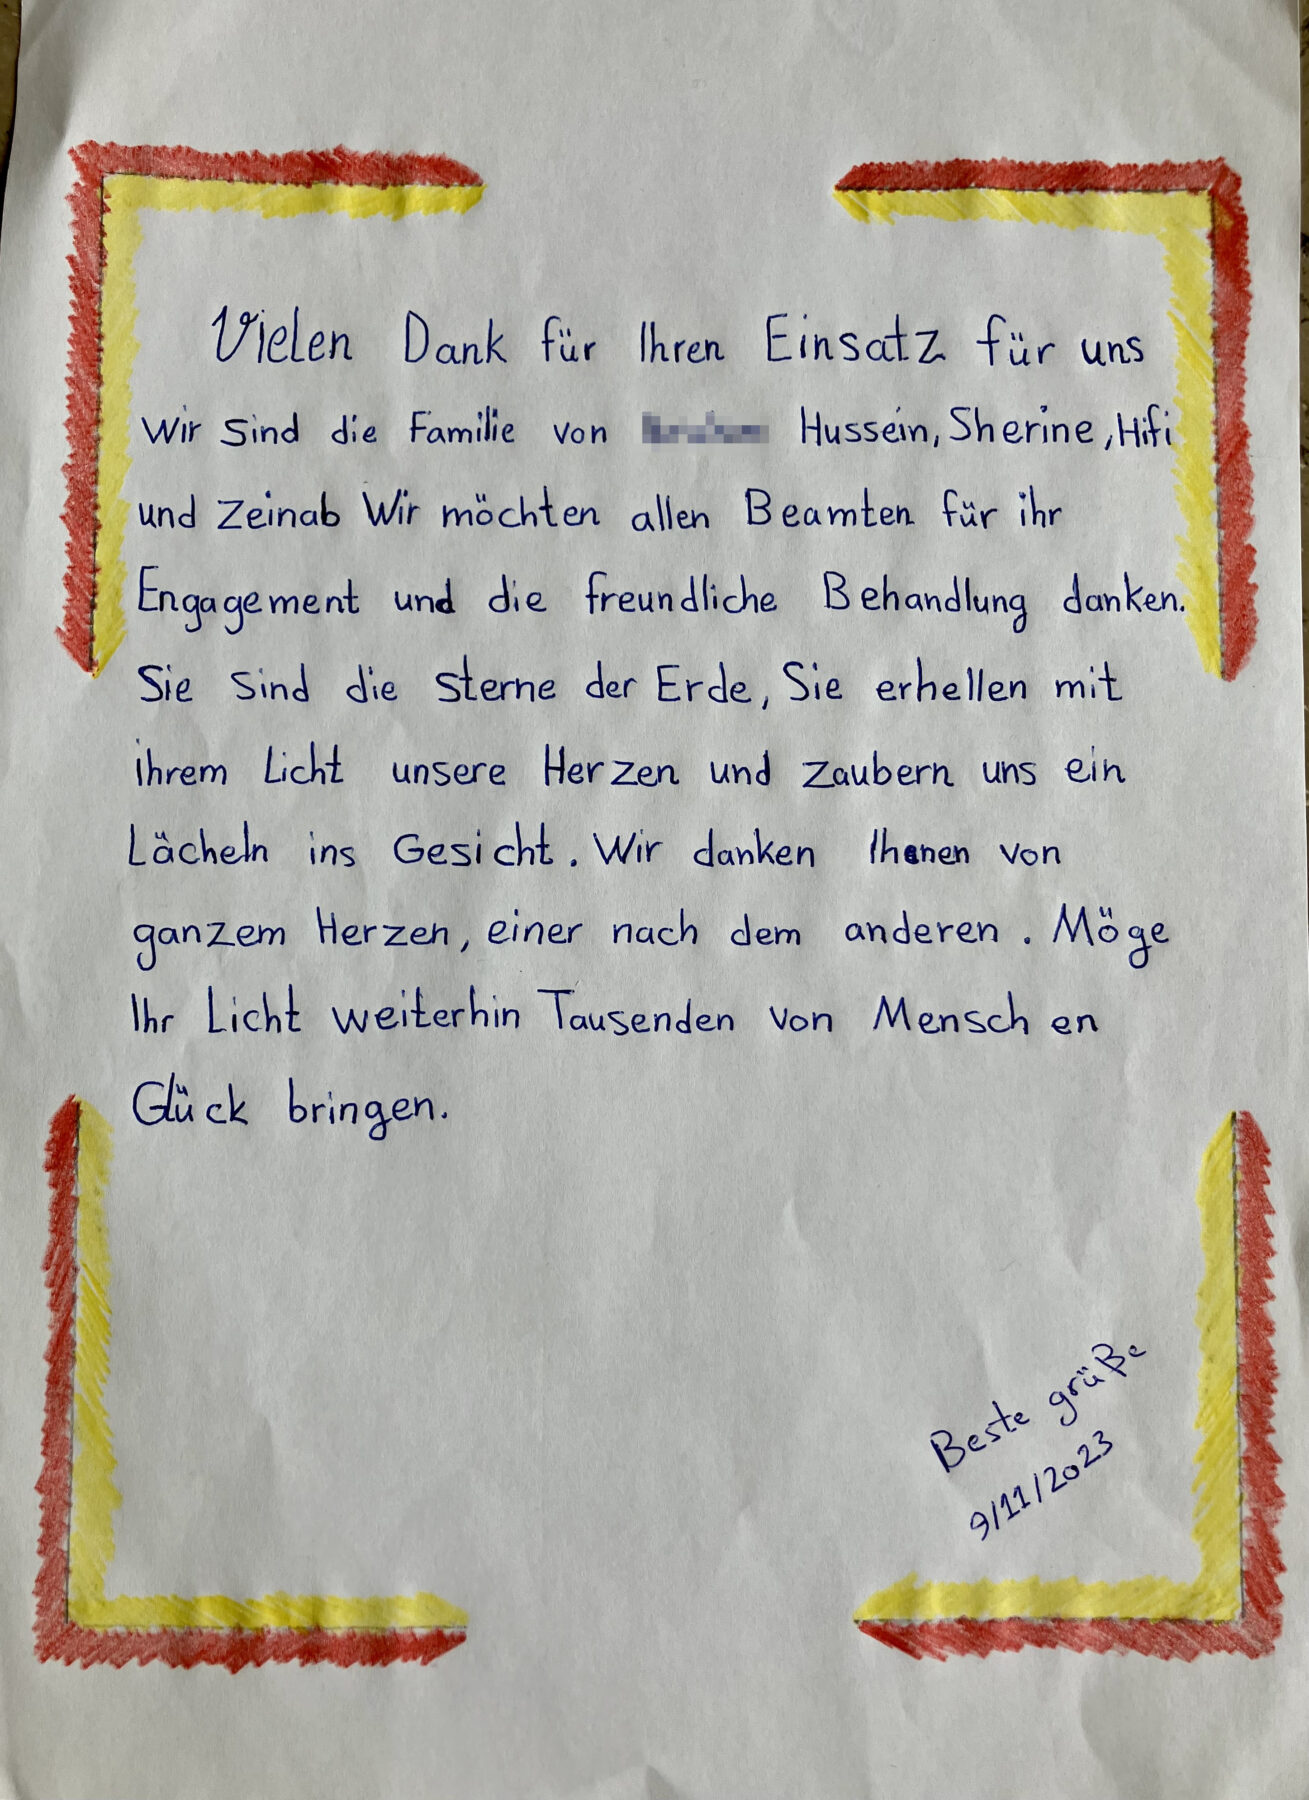 Vielen Dank für Ihren Einsatz für uns
Wir sind die Familie von Hussein, Sherine, Hifi
und Zeinab Wir möchten allen Beamten für ihr
Engagement und die freundliche Behandlung danken.
Sie sind die sterne der Erde, Sie erhellen mit
ihrem Licht unsere Herzen und zaubern uns ein
Lächeln ins Gesicht. Wir danken Ihenen von
ganzem Herzen, einer nach dem anderen. Möge
Ihr Licht weiterhin Tausenden von Menschen
Glück bringen.
Beste grüße
9/11/2023